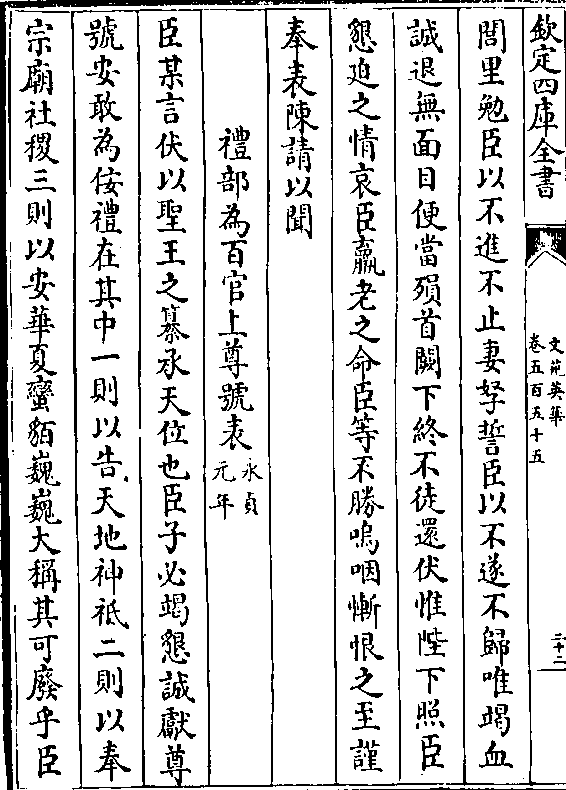 欽定四庫全書
文苑英華
卷五百五十五
三十二
閭里勉臣以不進不止妻孥誓臣以不遂不歸唯竭血
誠退無面目便當殞首闕下終不徒還伏惟陛下照臣
懇迫之情哀臣羸老之命臣等不勝嗚咽慚恨之至謹
奉表陳請以聞
禮部為百官上尊號表永貞元年
臣某言伏以聖王之纂承天位也臣子必竭懇誠獻尊
號安敢為佞禮在其中一則以告天地神祗二則以奉
宗廟社稷三則以安華夏蠻貊巍巍大稱其可廢乎臣